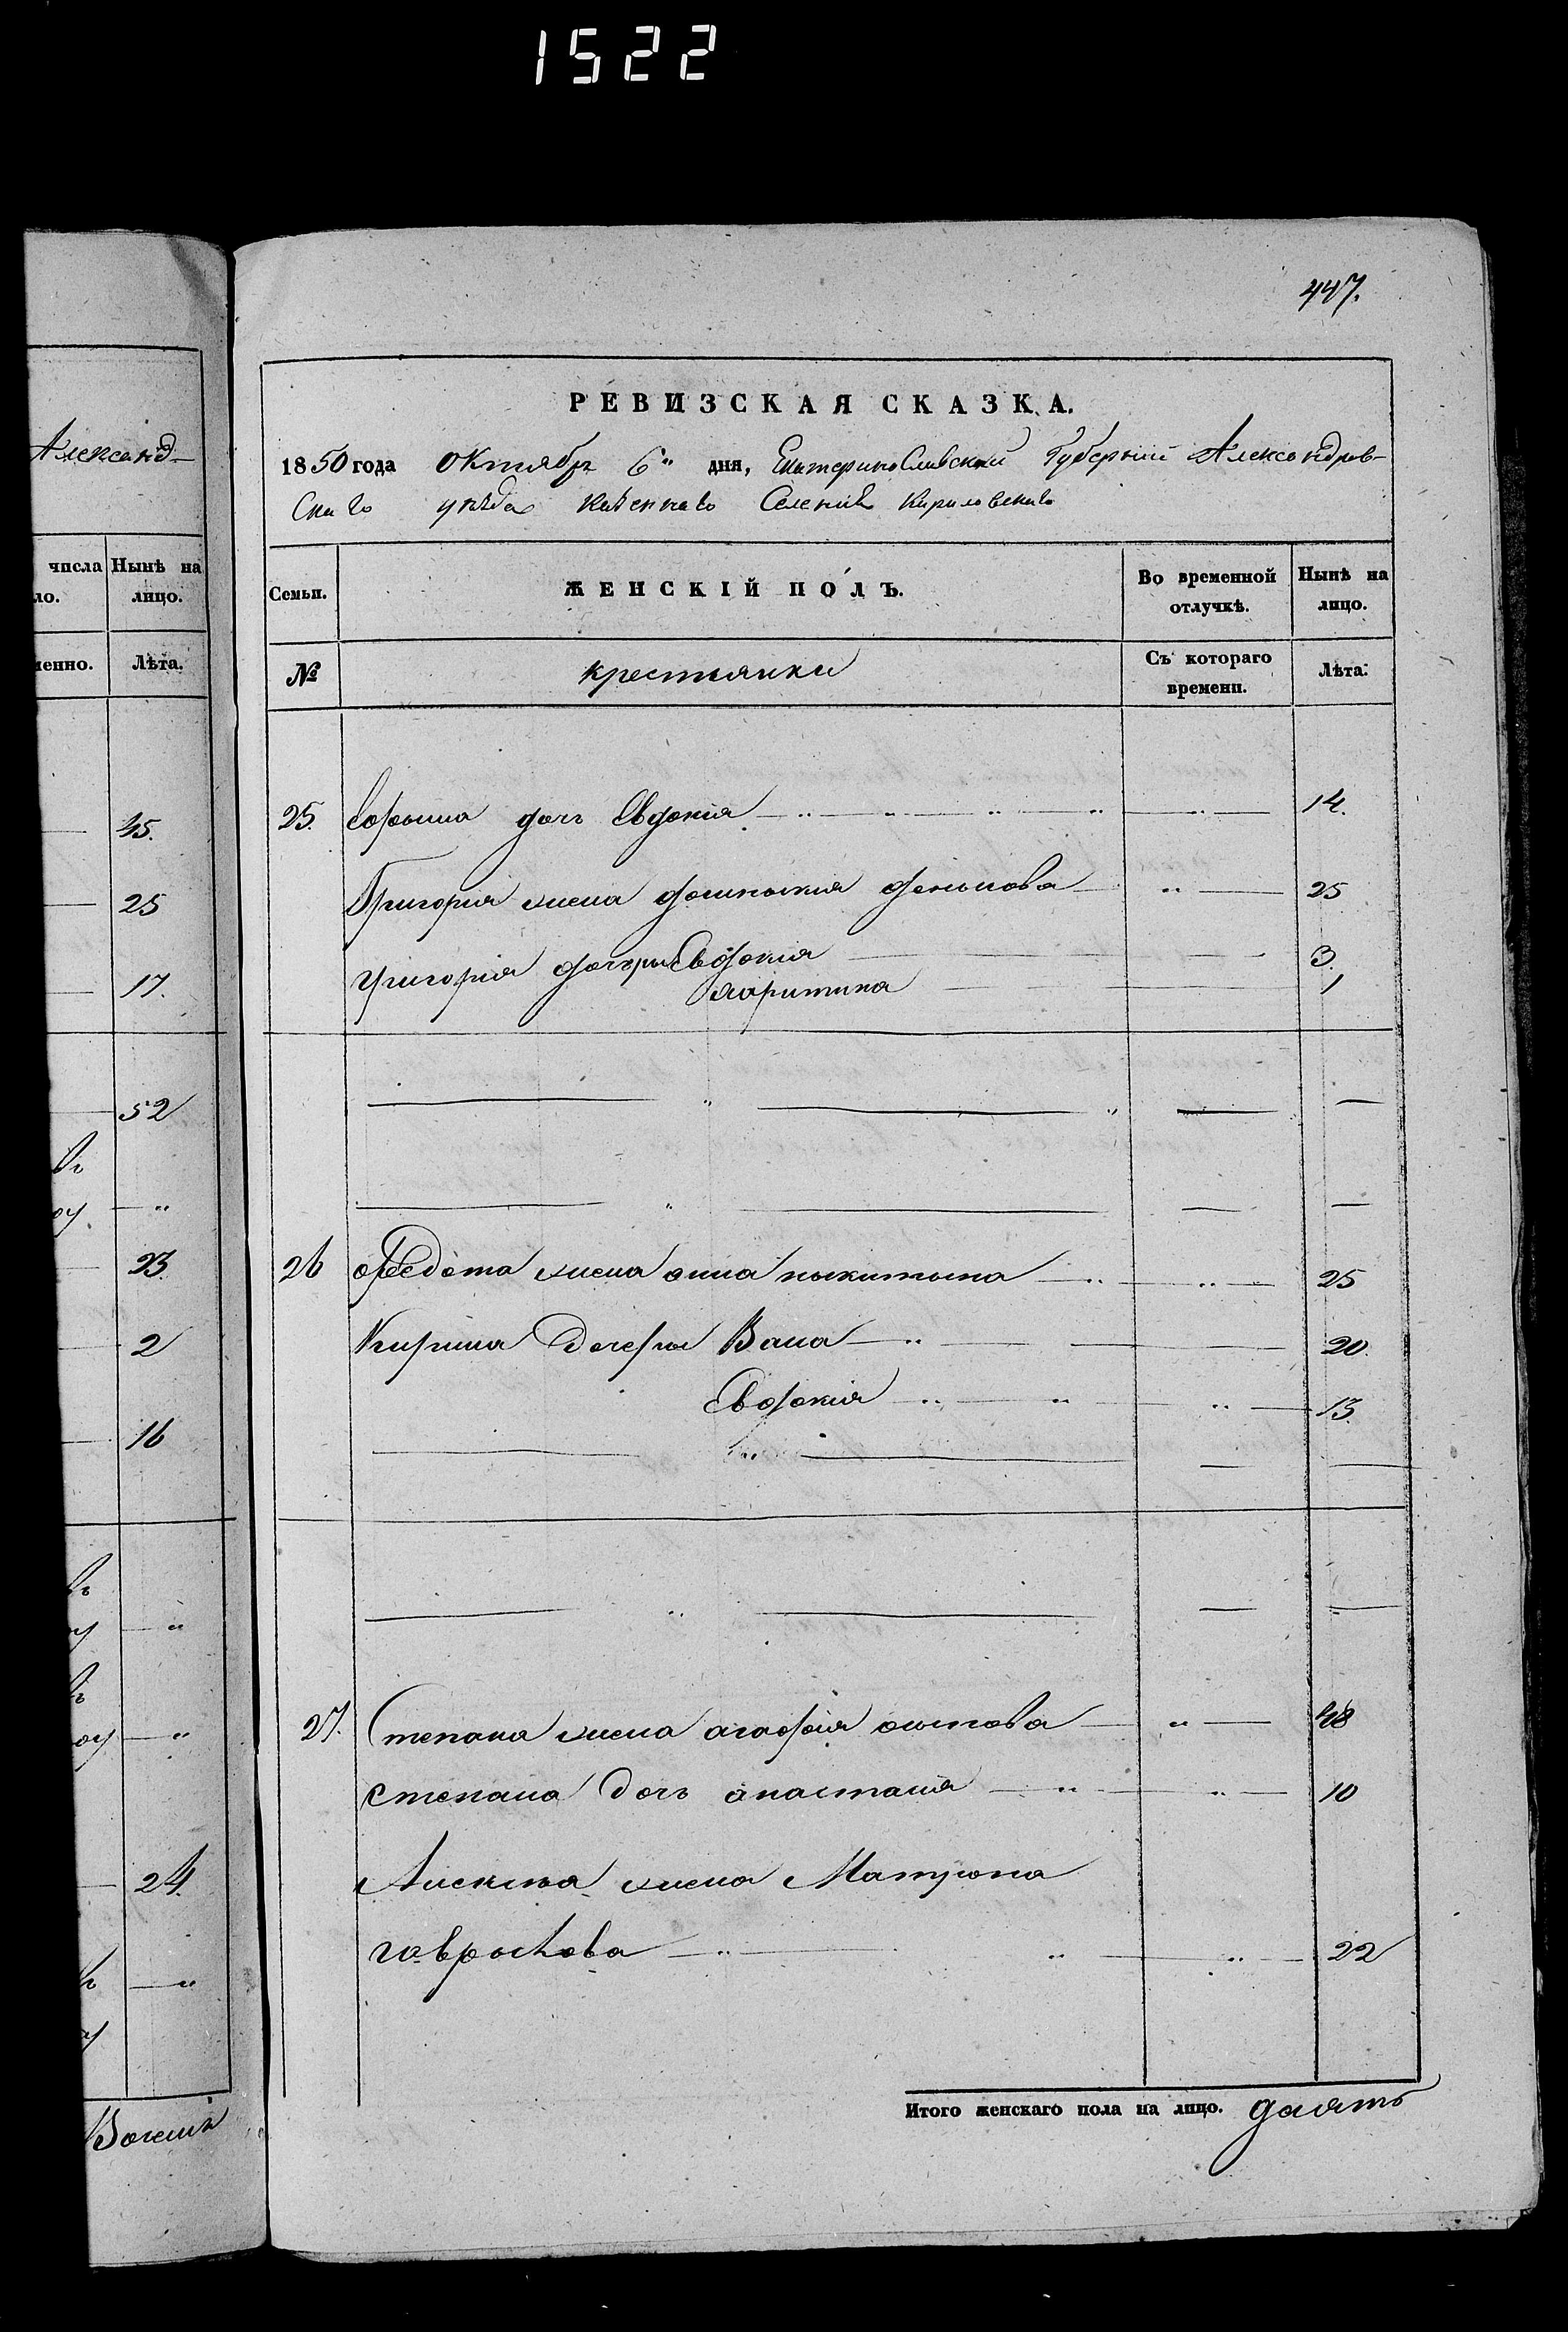 1522
447.
Александ-
числа Нынѣ на
ло. лицо.
менно. Лѣта.
45.
25
17.
52
въ
оу. "
23.
2
16
въ
оу "
въ
оу "
24.
въ "
у
Восемь
РЕВИЗСКАЯ СКАЗКА.
1850 года октября 6" дня, Екатеринославской Губернии Александров-
скаго уезда казеннаго Селения Кириловскаго
Семьи. ЖЕНСКІЙ ПОЛЪ. Во временной отлучкѣ. Нынѣ на лицо.
№ крестьянки Съ котораго времени. Лѣта.
25. дочь Евдокия 14.
Григория жена 25
григория дочери Евдокия 3.
харитина 1
26 Федота жена анна никитина 25
Кирила Дочери 20.
Евдокия 13.
27. Степана жена агафия осипова 48
Степана дочь анастасия 10
Алексея жена Матрона
22
Итого женскаго пола на лицо. десять